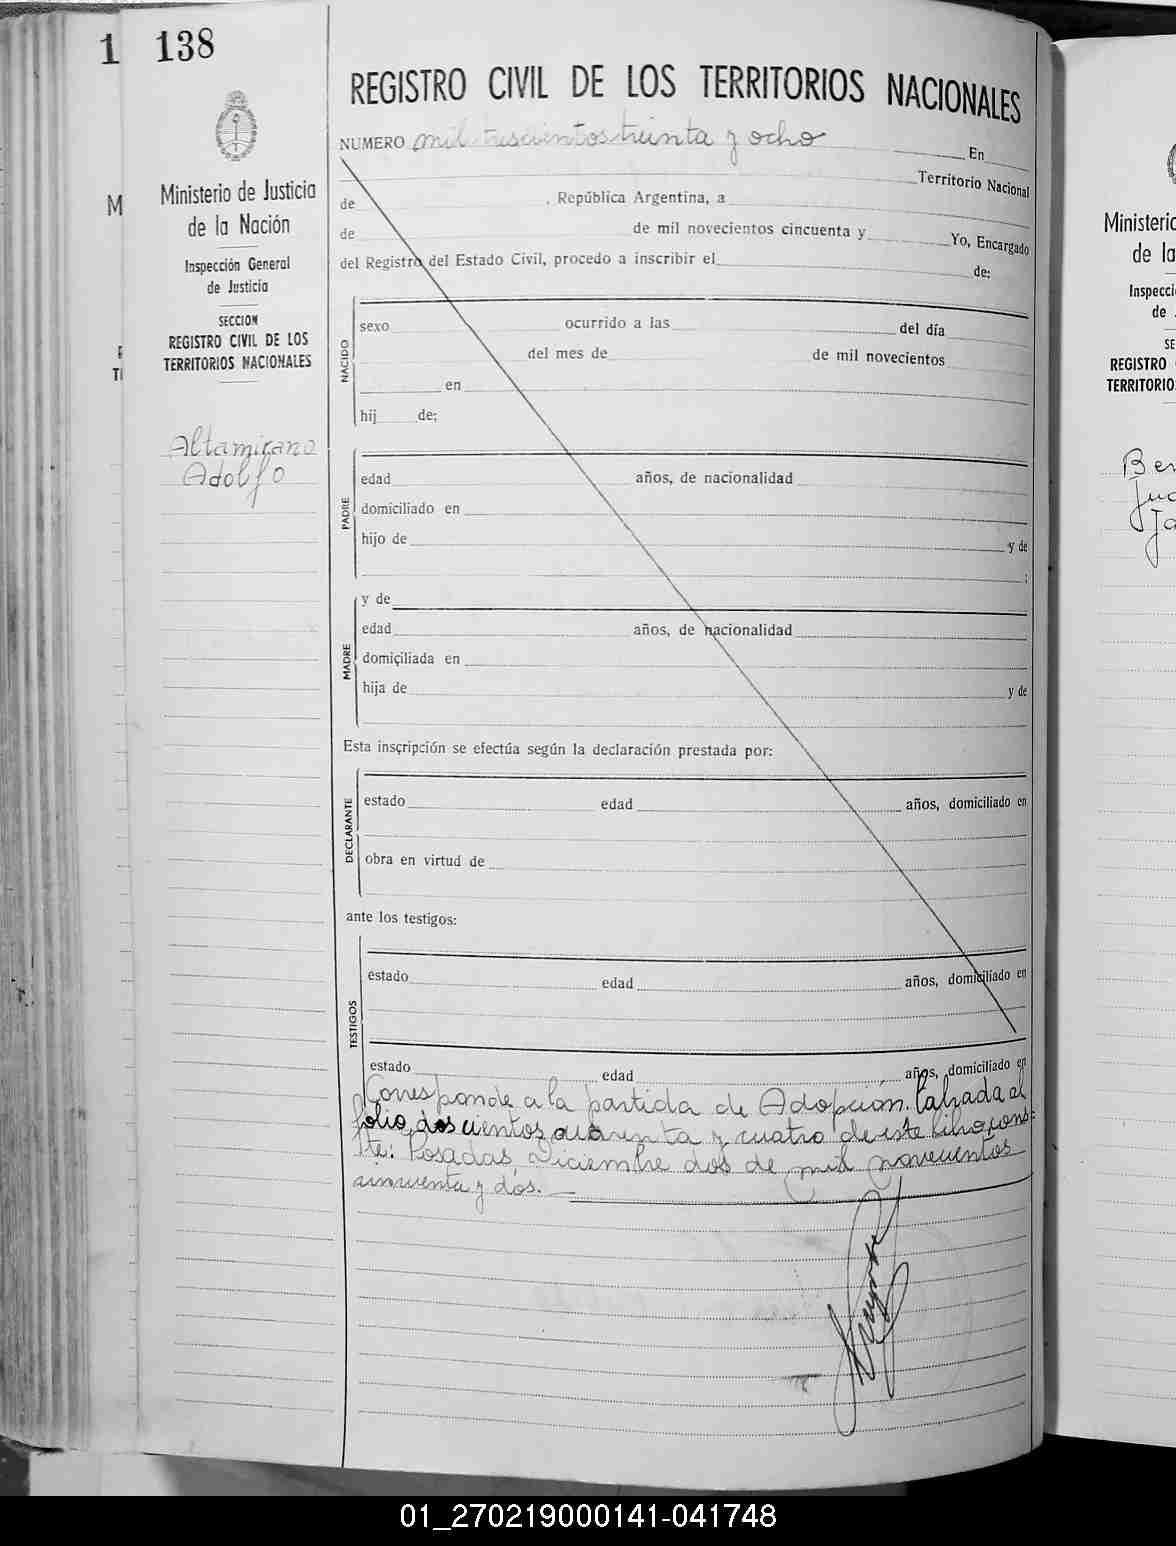 1 138
REGISTRO CIVIL DE LOS TERRITORIOS NACIONALES
NUMERO mil trescientos treinta y ocho En
Territorio Nacional
de , República Argentina, a
de de mil novecientos cincuenta y Yo, Encargado
del Registro del Estado Civil, procedo a inscribir el de:
Ministerio de Justicia
de la Nación
Inspección General
de Justicia
SECCION
REGISTRO CIVIL DE LOS
TERRITORIOS NACIONALES
Altamirano
Adolfo
NACIDO
sexo ocurrido a las del día
del mes de de mil novecientos
en
hij de;
PADRE
edad años, de nacionalidad
domiciliado en
hijo de y de
;
MADRE
y de
edad años, de nacionalidad
domiciliada en
hija de y de
Esta inscripción se efectúa según la declaración prestada por:
DECLARANTE
estado edad años, domiciliado en
obra en virtud de
ante los testigos:
TESTIGOS
estado edad años, domiciliado en
estado edad años, domiciliado en
Corresponde a la partida de Adopción. labrada al
folio doscientos cuarenta y cuatro de este libro, cons-
te: Posadas, Diciembre dos de mil novecientos
cincuenta y dos.
M
Ministerio
de la
Inspecci
de
SE
REGISTRO
TERRITORIO
Ber
Jua
01_270219000141-041748